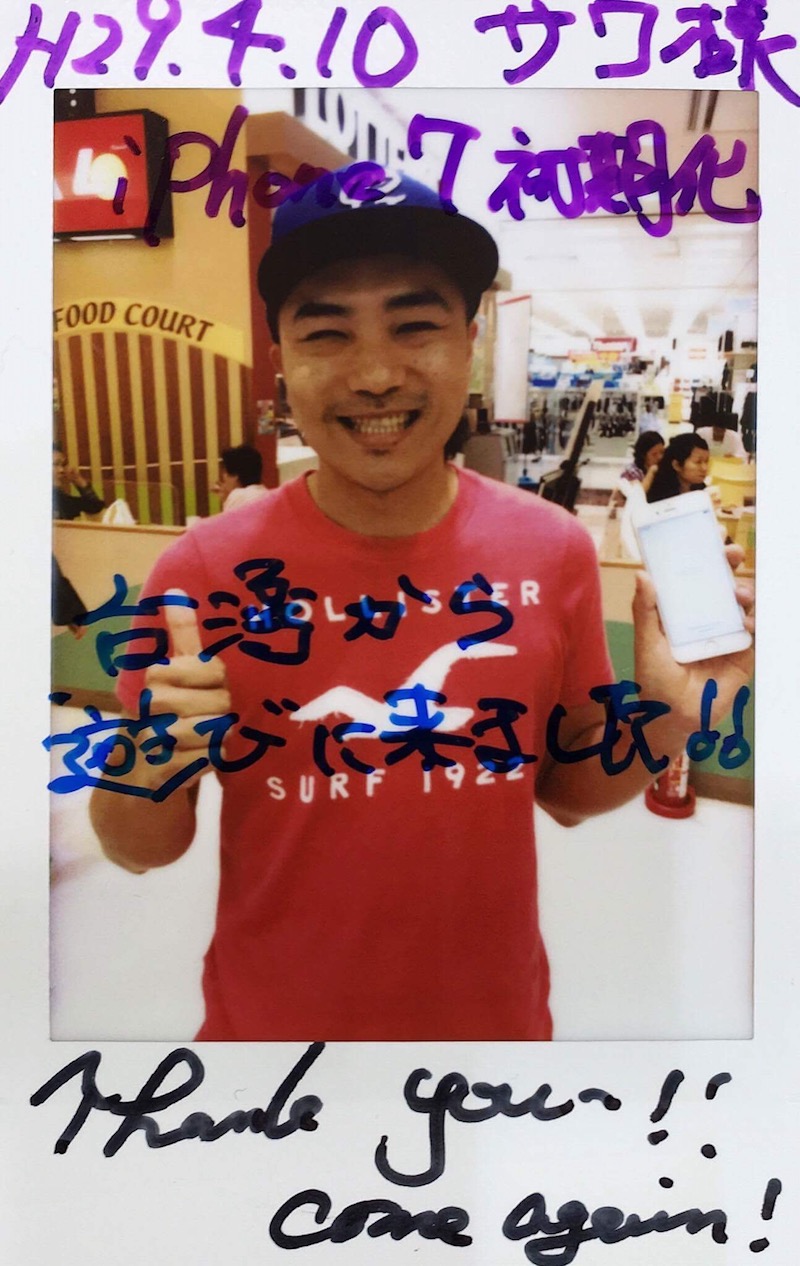 H29.4.10 サワ様
iPhone7 初期化
FOOD COURT
台湾から
HOLLISTER
遊びに来ました!!
SURF 1922
Thank you~!!
come again!